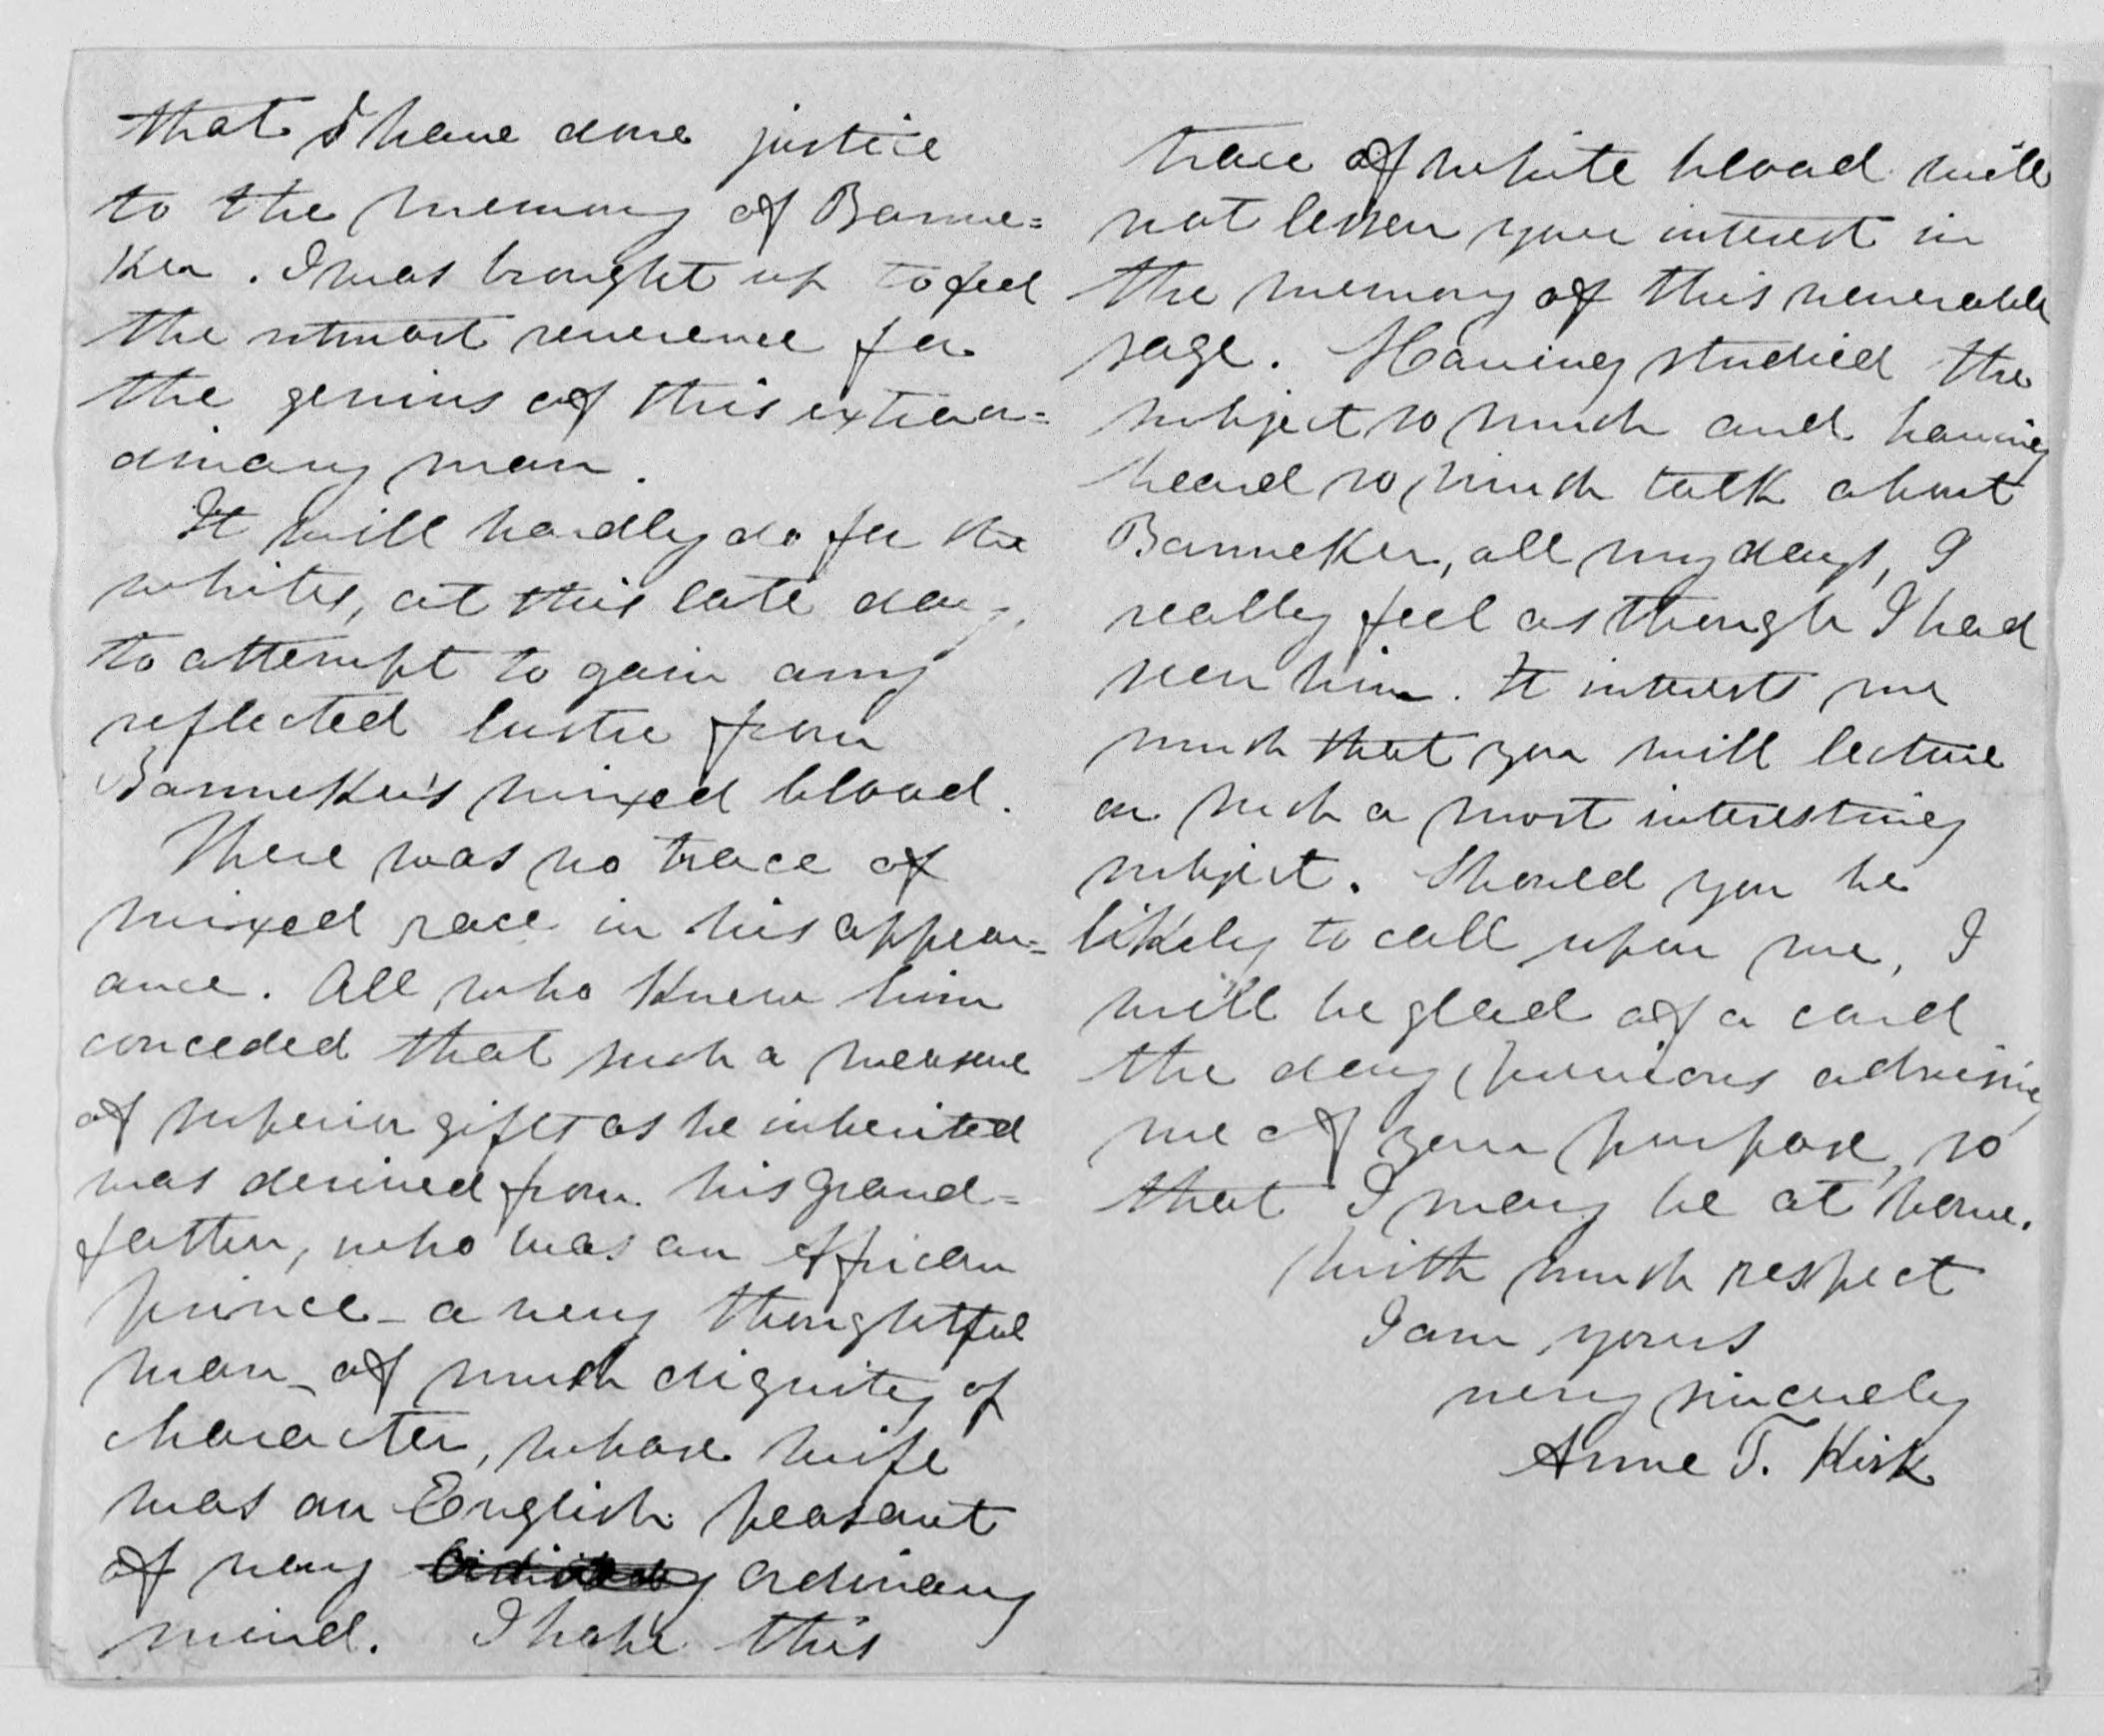 that I have done justice
to the memory of Banne=
ker. I was brought up to feel
the utmost reverence for
the genius of this extraor=
dinary man.
It will hardly do for the
whites, at this late day,
to attempt to gain any
reflected lustre from
Banneker's mixed blood.
There was no trace of
mixed race in his appear=
ance. All who knew him
conceded that such a measure
of superior gifts as he inherited
was derived from his grand=
father, who was an African
prince - a very thoughtful
man - of much dignity of
character, whose wife
was an English peasant
of very ordinary
mind. I hope this
trace of white blood will
not lessen your interest in
the memory of this venerable
sage. Having studied the
subject so much and having
heard so much talk about
Banneker, all my days, I
really feel as though I had
seen him. It interests me
much that you will lecture
on such a most interesting
subject. Should you be
likely to call upon me, I
will be glad of a card
the day previous advising
me of your purpose, so
that I may be at home.
With much respect
I am yours
very sincerely
Anne T. Kirk